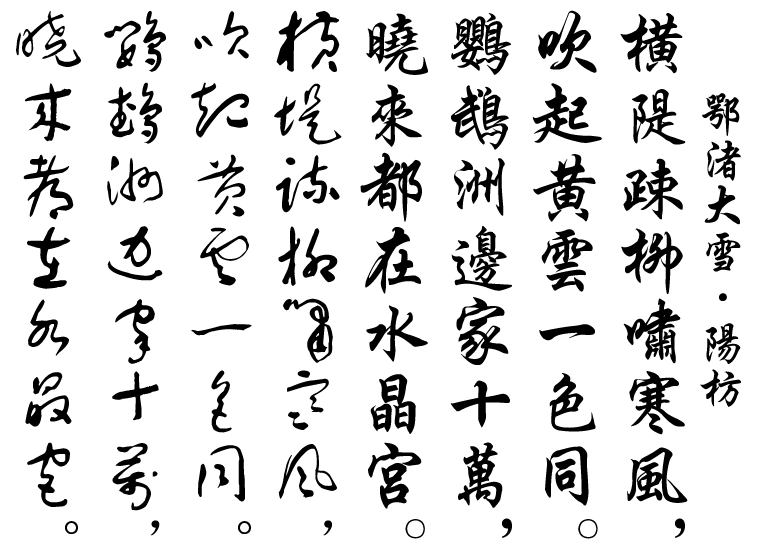 鄂渚大雪・陽枋
横隄疎柳嘯寒風，
吹起黄雲一色同。
鸚鵡洲邊家十萬，
曉來都在水晶宮。
横堤疎柳嘯寒風，
吹起黄雲一色同。
鸚鵡洲邊家十萬，
曉來都在水晶宮。